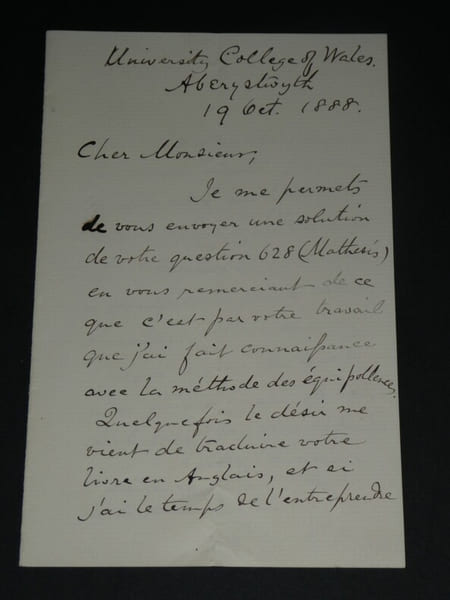 University College of Wales.
Aberystwyth
19 Oct. 1888.
Cher Monsieur,
Je me permets
de vous envoyer une solution
de votre question 628 (Mathesis)
en vous remerciant de ce
que c'est par votre travail
que j'ai fait connaiſsance
avec la méthode des équipollences.
Quelquefois le désir me
vient de traduire votre
livre en Anglais, et si
j'ai le temps de l'entreprendre